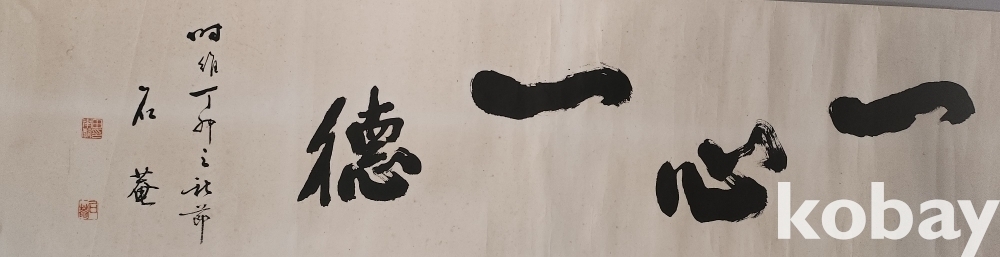 一心一德
時維丁卯之秋節
石菴
kobay